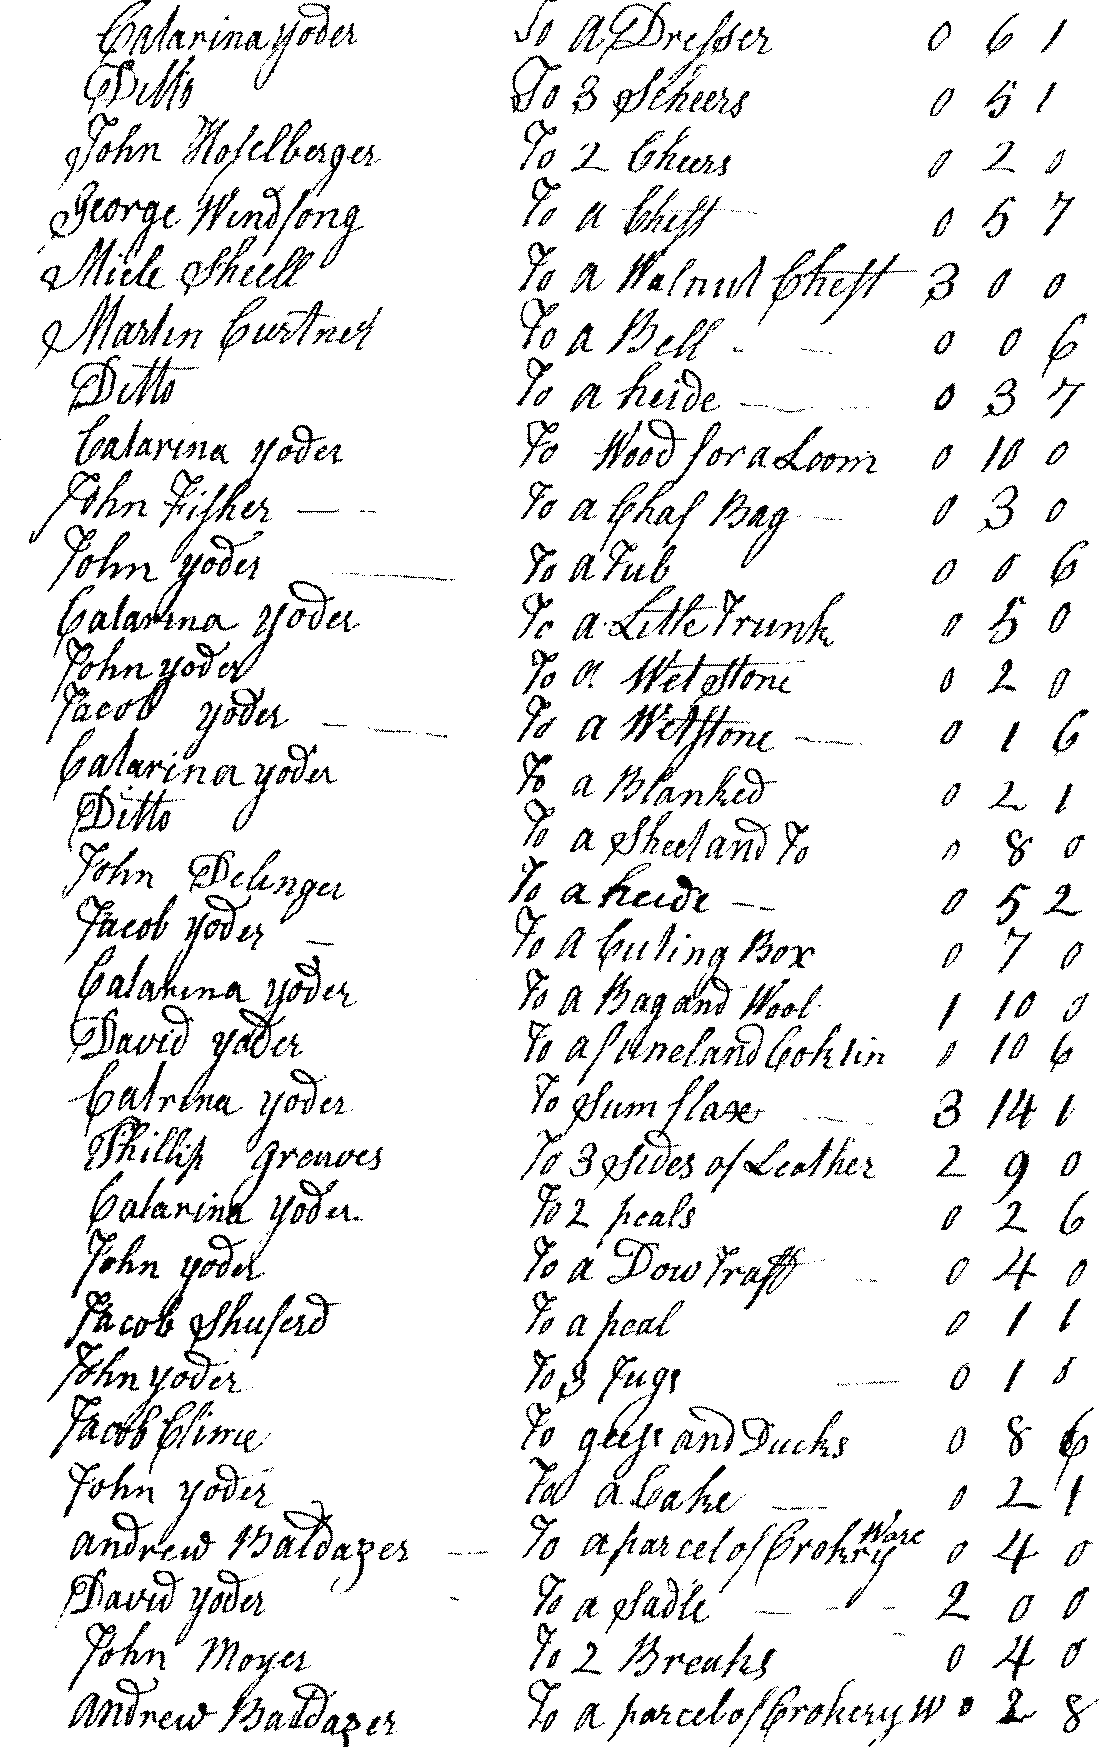 Catarina yoder To a Dresser 0 6 1
Ditto To 3 Scheers 0 5 1
John Hoselberger To 2 Cheers 0 2 0
George Windsong To a Chest 0 5 7
Micle Sheell To a Walnut Chest 3 0 0
Martin Curtner To a Bell - - 0 0 6
Ditto To a heide — 0 3 7
Catarina yoder To Wood for a Loom 0 10 0
John Fisher — - To a Chaf Bag — 0 3 0
John yoder — To a Tub 0 0 6
Catarina yoder To a Little Trunk 0 5 0
John yoder To a Wet Stone 0 2 0
Jacob yoder — To a Wetstone — 0 1 6
Catarina yoder To a Blanked 0 2 1
Ditto To a Sheet and To 0 8 0
John Delinger To a heide — 0 5 2
Jacob yoder — To a Cuting Box 0 7 0
Catarina yoder To a Bag and Wool 1 10 0
David yoder To a funel and 0 10 6
Catrina yoder To Sum flax 3 14 1
Phillip greaves To 3 Sides of Leather 2 9 0
Catarina yoder To 2 peals 0 2 6
John yoder To a Dow Traft 0 4 0
Jacob Shuferd To a peal 0 1 1
John yoder To 3 Jugs — 0 1
Jacob Clime To geess and Ducks 0 8 6
John yoder To a Cake — 0 2 1
andrew Baldazer — To a parcel of Crokry Ware 0 4 0
David yoder - To a Sadle — - - 2 0 0
John Moyer To 2 Breaks 0 4 0
andrew Baldazer To a parcel of Crokery W 0 2 8